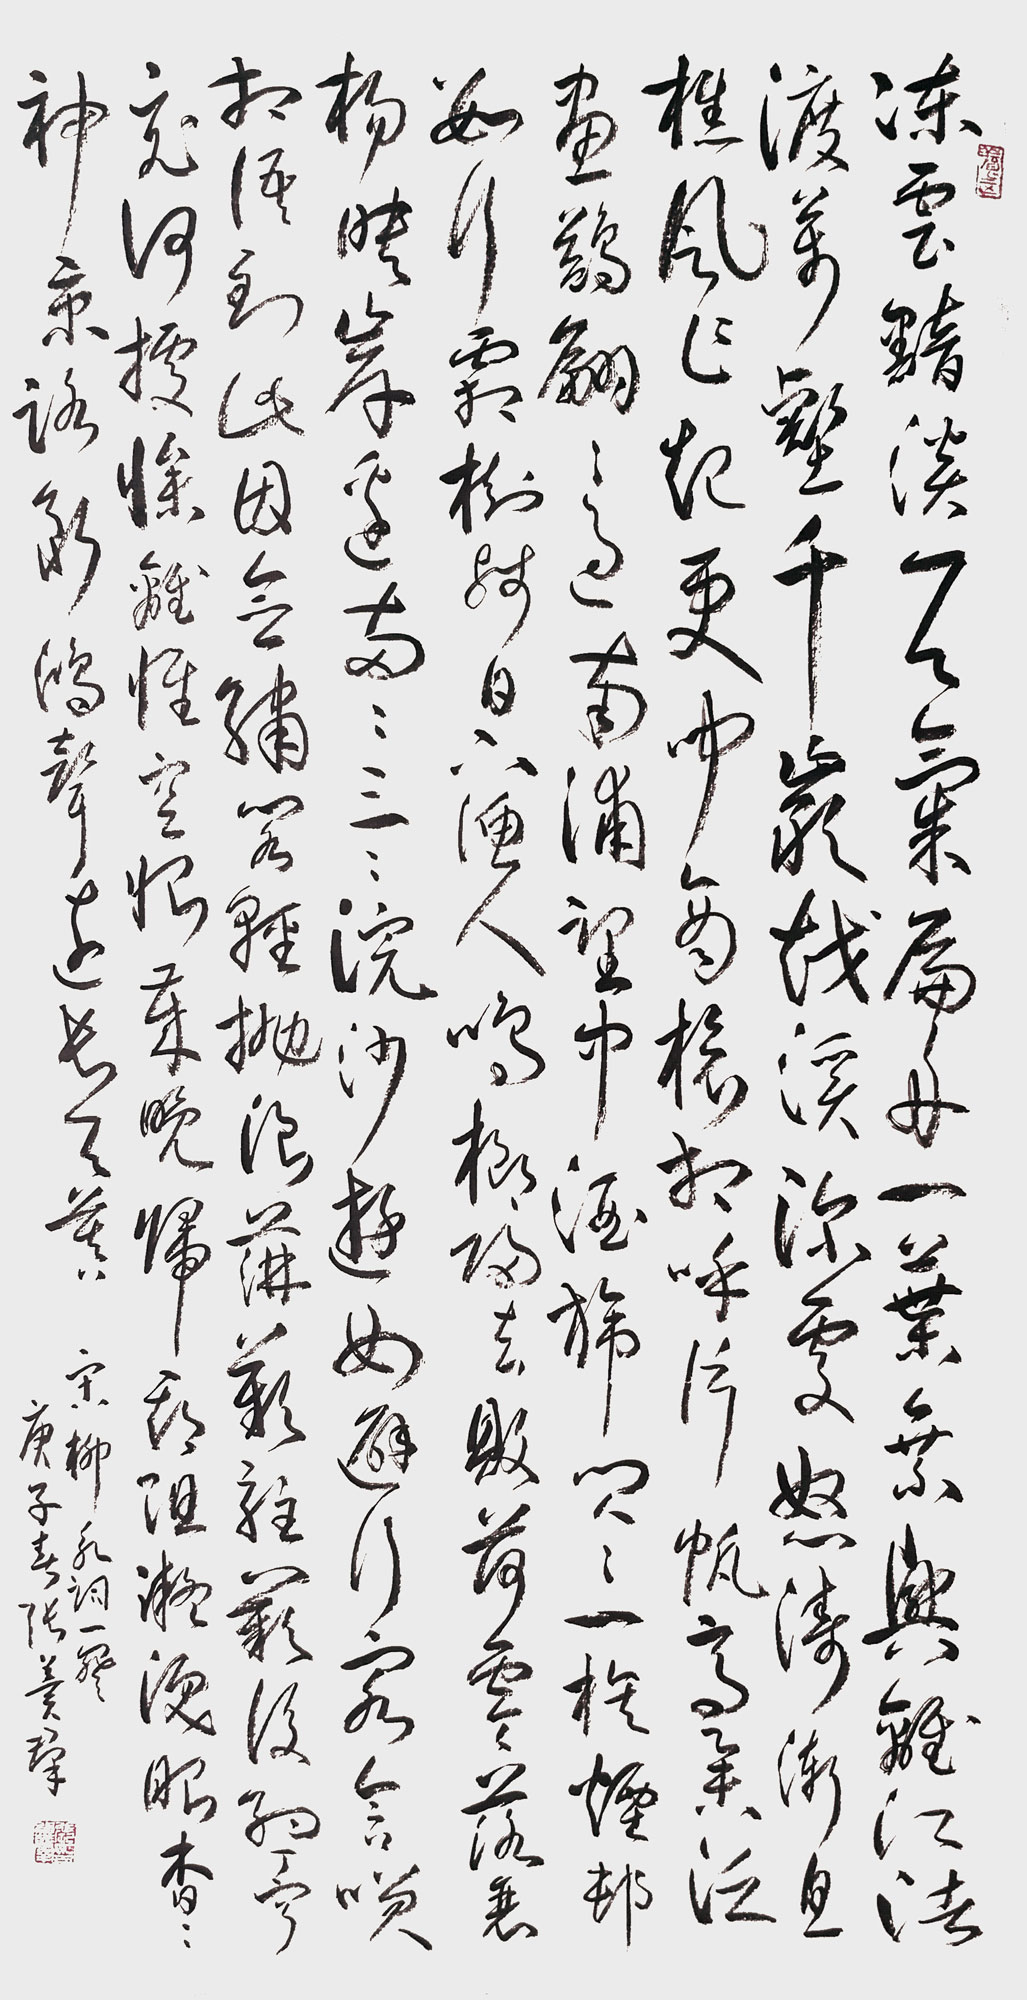 凍雲黯淡天氣扁舟一葉乘興離江渚
渡萬壑千巖越溪深處怒濤漸息
樵風乍起更聞商旅相呼片帆高舉泛
畫鷁翩〻過南浦望中酒旆閃〻一簇煙村
數行霜樹殘日下漁人鳴榔歸去敗荷零落衰
楊映岸邊兩〻三〻浣沙遊女避行客含笑
相語到此因念繡閣輕拋浪萍難駐歎後約丁寧
竟何據慘離懷空恨歲晚歸期阻凝淚眼杳〻
神京路斷鴻聲遠長天暮
宋柳永詞一闋
庚子春張